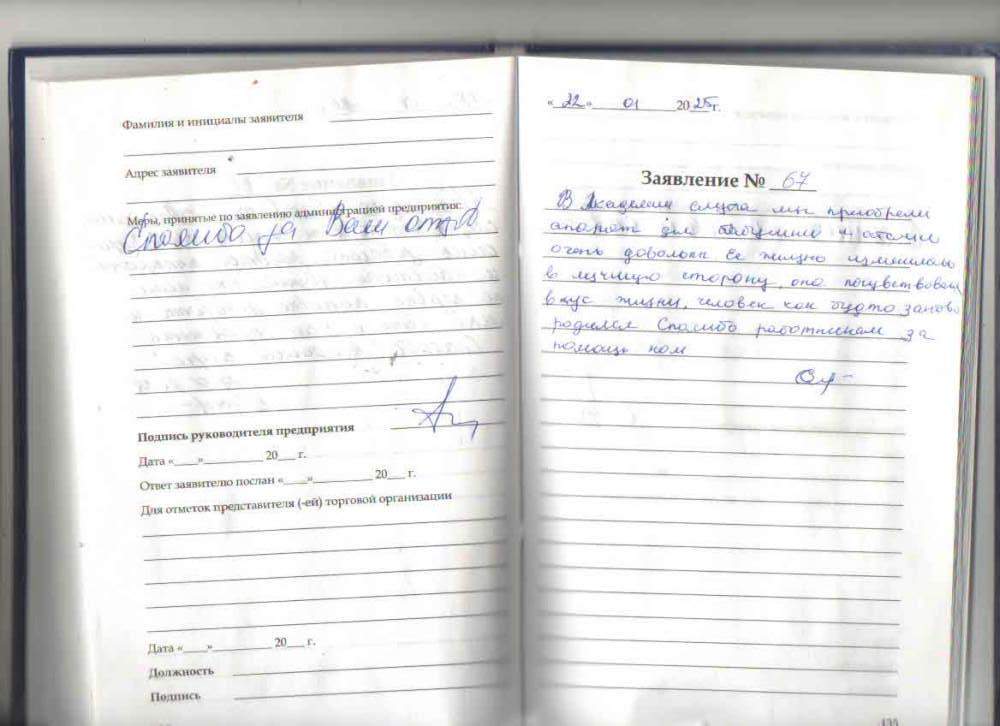 Фамилия и инициалы заявителя
Адрес заявителя
Меры, принятые по заявлению администрацией предприятия:
Спасибо за Ваш отзыв
Подпись руководителя предприятия
Дата «____»__________ 20___ г.
Ответ заявителю послан «____»__________ 20___ г.
Для отметок представителя (-ей) торговой организации
Дата «____»__________ 20___ г.
Должность
Подпись
«22» 01 2025г.
Заявление № 67
В Академии слуха мы приобрели
апарат для бабушки
очень довольны Ее жизнь изменилась
в лучшую сторону, она почувствовала
вкус жизни, человек как будто заново
родился Спасибо работникам за
помощь нам
135